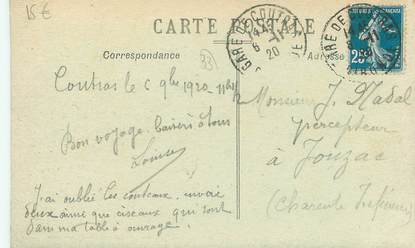 15€
CARTE POSTALE
Correspondance
Adresse
GARE DE COUTRAS
6 -11
20
GARE DE
33
25
Coutras le 6 9bre 1920 - 11h 1/2
Bon voyage. baisers à tous
Louise
J'ai oublié les couteaux. envoie
deux ainsi que ciseaux qui sont
dans ma table à ouvrage.
Monsieur J. Nadal
percepteur
à Jonzac
(Charente Inférieure)